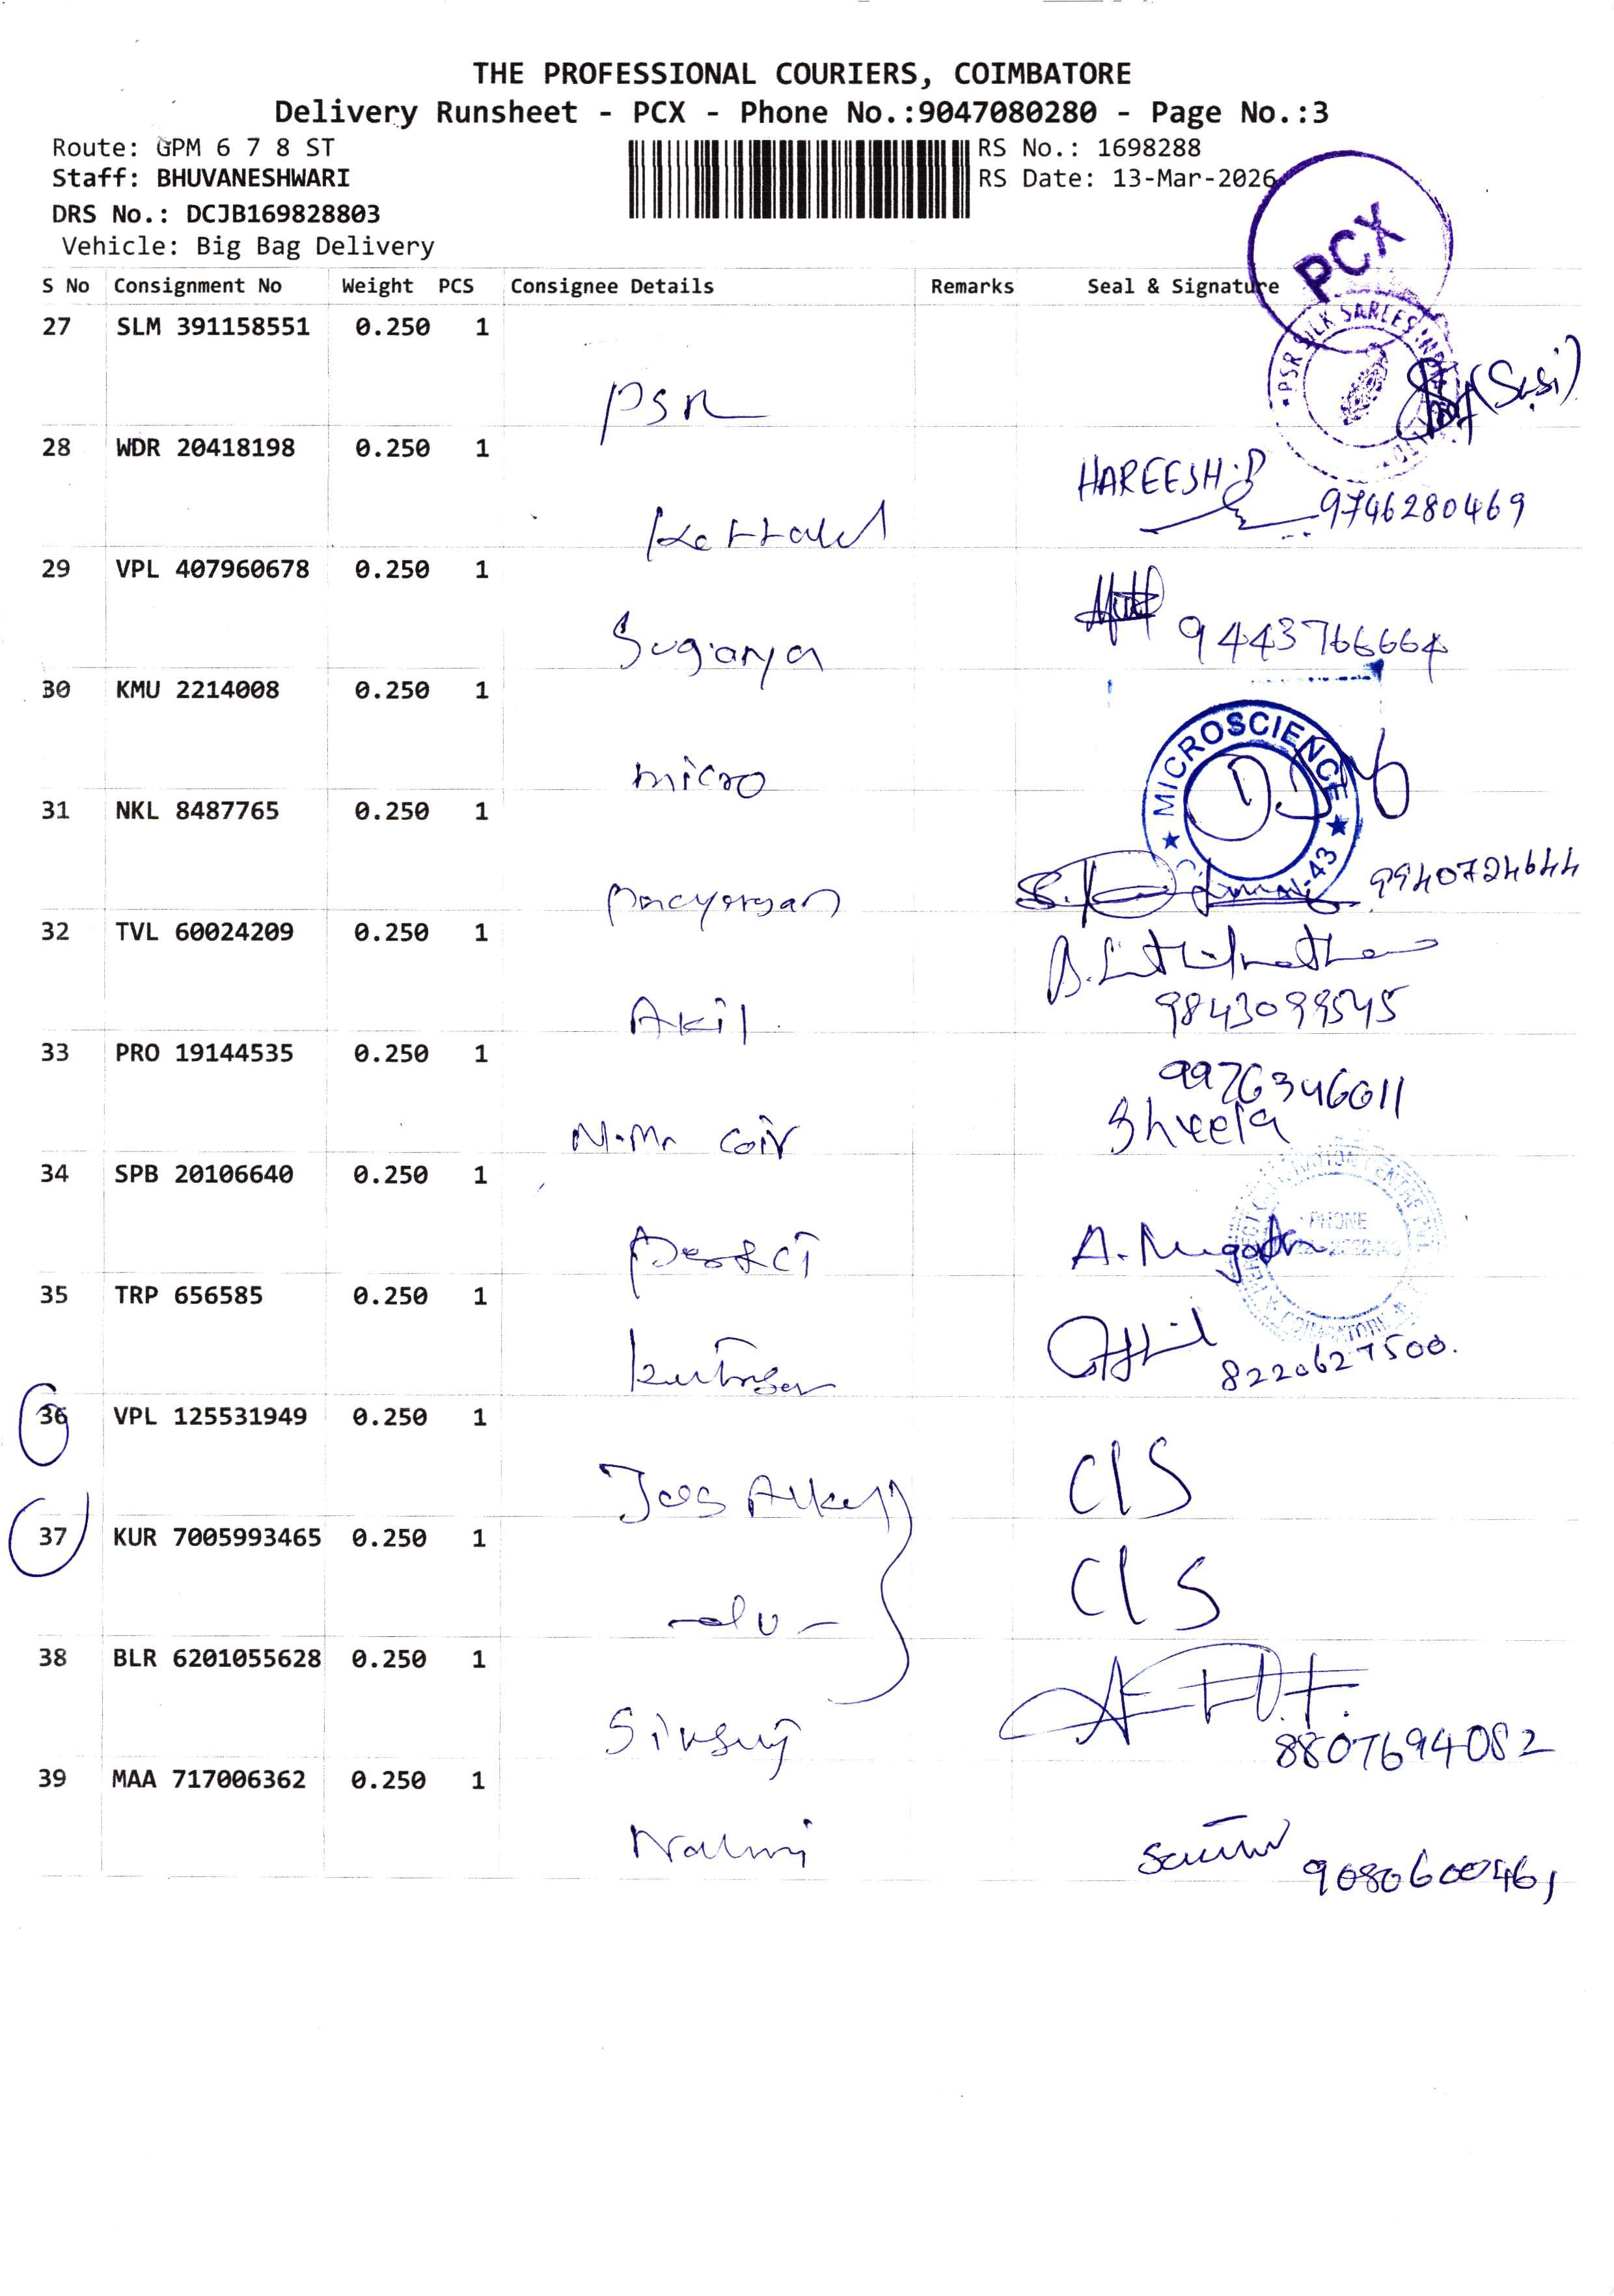 THE PROFESSIONAL COURIERS, COIMBATORE
Delivery Runsheet - PCX - Phone No.:9047080280 - Page No.:3
Route: GPM 6 7 8 ST
Staff: BHUVANESHWARI
DRS No.: DCJB169828803
Vehicle: Big Bag Delivery
RS No.: 1698288
RS Date: 13-Mar-2026
PCX
S No Consignment No Weight PCS Consignee Details Remarks Seal & Signature
27 SLM 391158551 0.250 1
PSR
PSR SILK SAREES
(Sasi)
28 WDR 20418198 0.250 1
HAREESH.P
9746280469
29 VPL 407960678 0.250 1
Suganya
9443766664
30 KMU 2214008 0.250 1
micro
MICROSCIENCE
31 NKL 8487765 0.250 1
9940724644
32 TVL 60024209 0.250 1
Akil
9843099545
33 PRO 19144535 0.250 1
N.Mr Coir
9976346011
Sheela
34 SPB 20106640 0.250 1
PHONE
35 TRP 656585 0.250 1
8220627500.
36 VPL 125531949 0.250 1
CLS
37 KUR 7005993465 0.250 1
CLS
38 BLR 6201055628 0.250 1
8807694082
39 MAA 717006362 0.250 1
9080600461